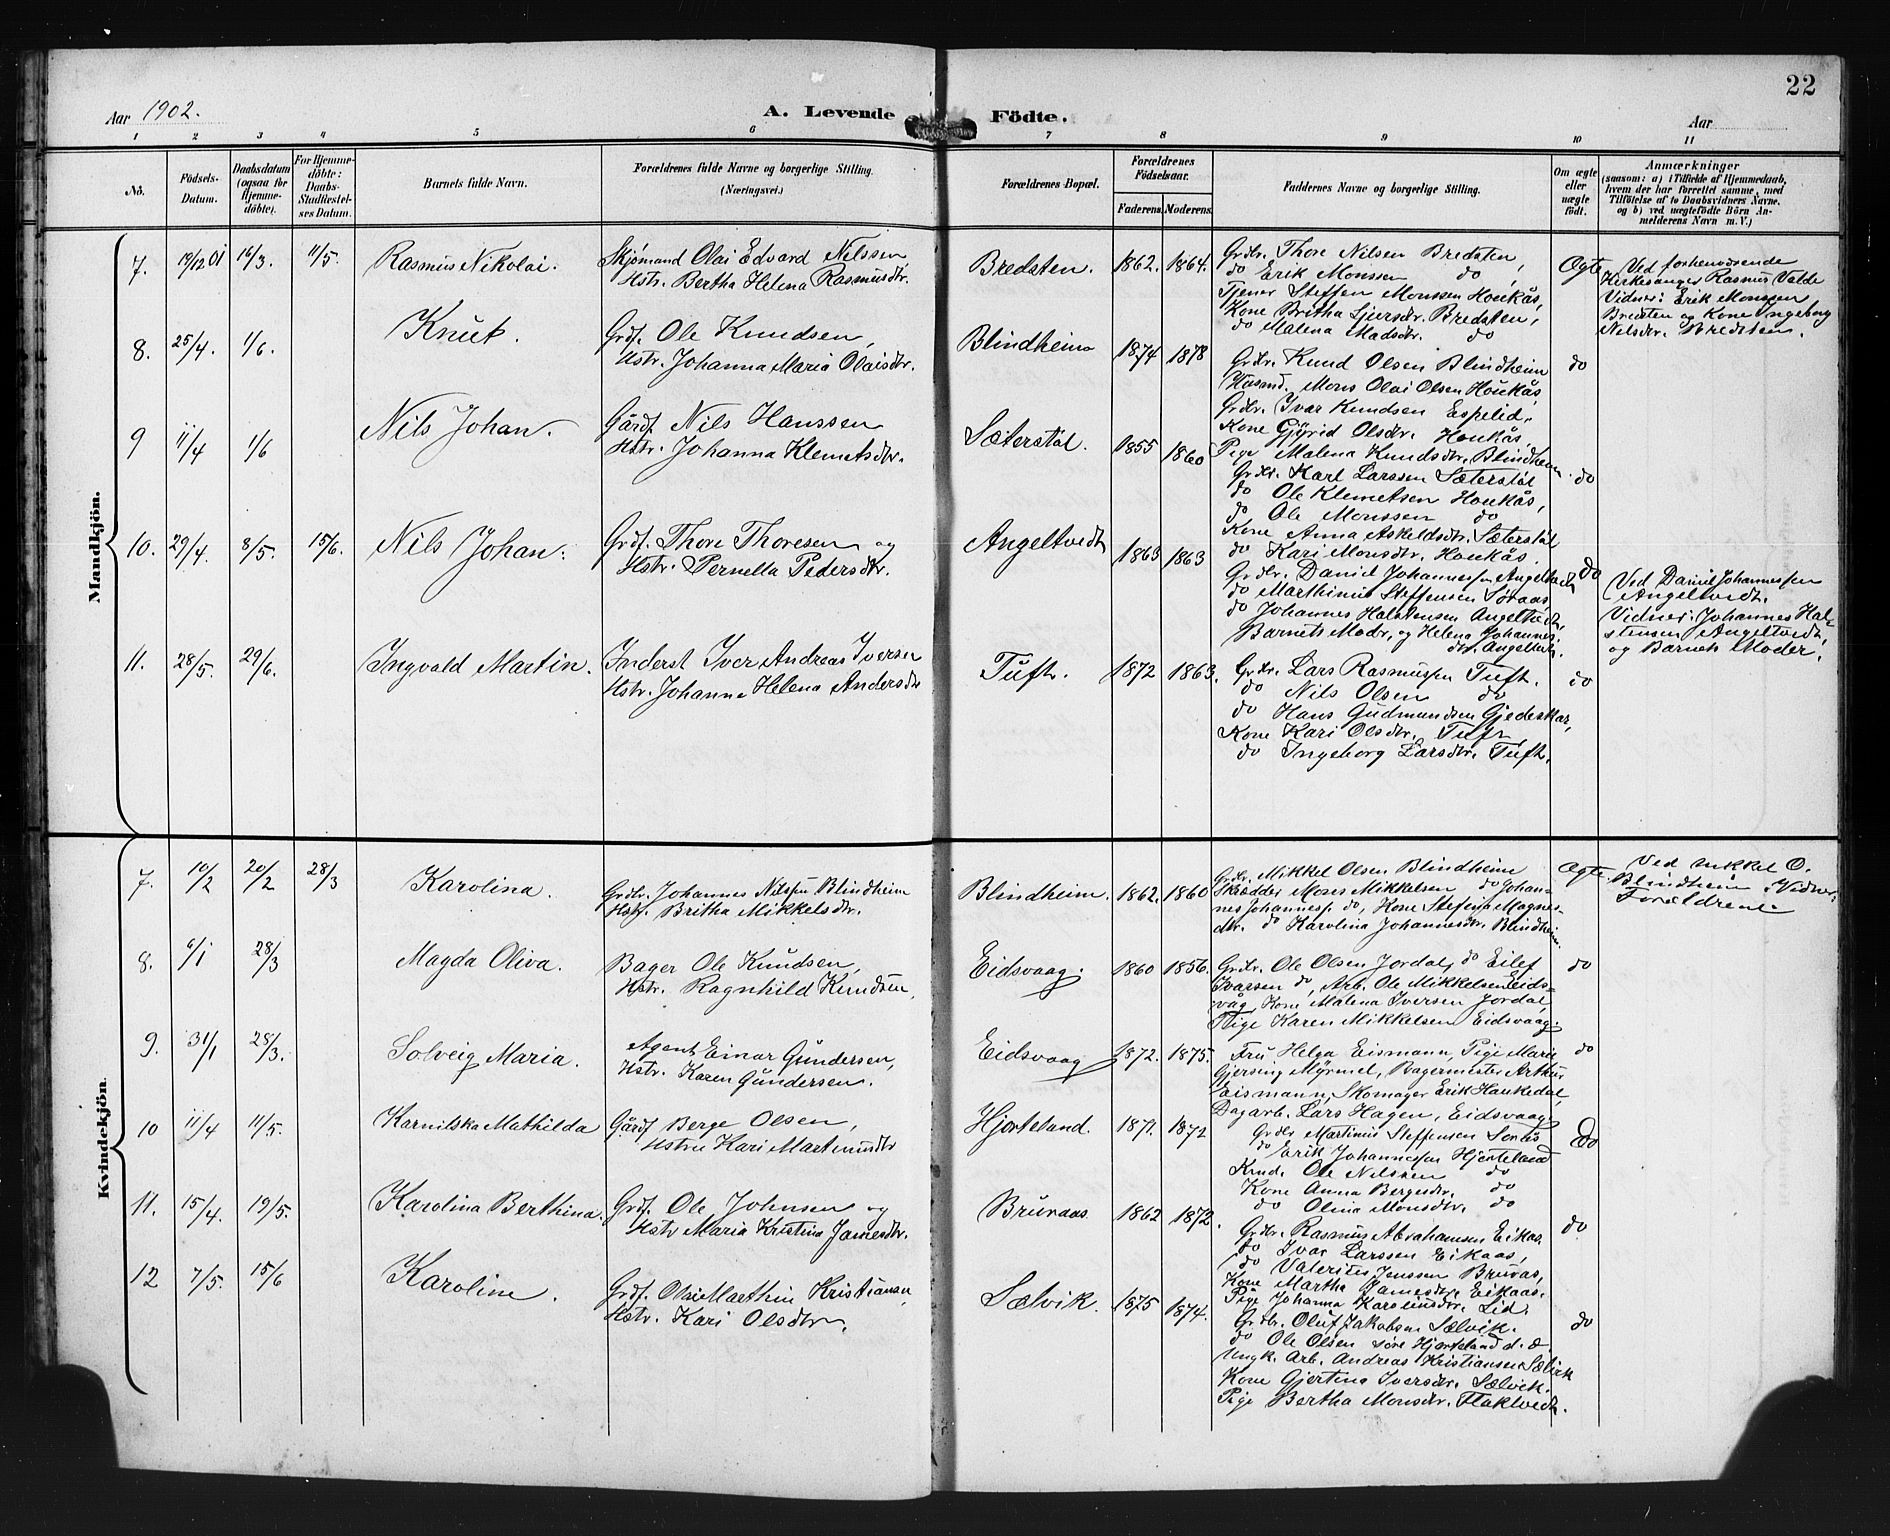 22
Aar 1902.
A. Levende Födte.
Aar
1 2 3 4 5 6 7 8 9 10 11
No.
Födsels-
Datum.
Daabsdatum
(ogsaa for
Hjemme-
döbte).
For Hjemme-
döbte:
Daabs-
Stadfæstel-
ses Datum.
Barnets fulde Navn.
Forældrenes fulde Navne og borgerlige Stilling.
(Næringsvei.)
Forældrenes Bopæl.
Forældrenes
Födselsaar.
Faderens.
Moderens.
Faddernes Navne og borgerlige Stilling.
Om ægte
eller
uægte
födt.
Anmærkninger
(saasom: a) i Tilfælde af Hjemmedaab,
hvem der har forrettet samme, med
Tilföielse af to Daabsvidners Navne,
og b) ved uægtefödte Börn An-
melderens Navn m. V.)
Mandkjön.
7. 19/12 01 16/3. 11/5. Rasmus Nikolai.
Skjømand Olai Edvard Nilssen,
Hstr. Bertha Helena Rasmusdtr.
Bredsten. 1862. 1864.
Grdbr. Thore Nilsen Bredsten,
do Erik Monssen do,
Tjener Steffen Monssen Houkås,
Kone Britha Sjursdtr. Bredsten,
do Malena Madsdtr. do
Ægte
Ved forhenværende
Kirkesanger Rasmus Valde
Vidner: Erik Monssen
Bredsten og Kone Ingeborg
Nilsdtr. Bredsten.
8. 25/4. 1/6. Knut.
Grdf. Ole Knudsen,
Hstr. Johanna Maria Olaisdtr.
Blindheim 1874 1878
Grdbr. Knud Olsen Blindheim
Husmd. Mons Olai Olsen Houkås
Grdbr. Ivar Knudsen Espelid,
Kone Gjyrid Olsdtr. Houkås,
Pige Malena Knudsdtr. Blindheim.
do
9 11/4 1/6 Nils Johan.
Gårdf. Nils Hanssen
Hstr. Johanna Klemetsdtr.
Sæterstøl. 1855 1860
Grdbr. Karl Larssen Sæterstøl
do Ole Klemetsen Houkås,
do Ole Monssen do
Kone Anna Askeldsdtr. Sæterstøl
do Kari Monsdtr. Houkås.
do
10. 29/4. 8/5. 15/6. Nils Johan.
Grdf. Thore Thoresen og
Hstr. Pernella Pedersdtr.
Angeltvedt 1863 1863
Grdbr. Daniel Johannessen Angeltvedt
do Marthinus Steffensen Søraas,
do Johannes Halstensen Angeltvedt,
Barnets Moder, og Helena Johannes-
dtr. Angeltvedt.
do
Ved Daniel Johannessen
Angeltvedt.
Vidner: Johannes Hal-
stensen Angeltvedt,
og Barnets Moder.
11. 28/5. 29/6. Ingvald Martin.
Inderst Iver Andreas Iversen
Hstr. Johanne Helena Andersdtr
Tuft. 1872 1863.
Grdbr. Lars Rasmussen Tuft.
do Nils Olsen do
do Hans Gudmundsen Gjedeskar,
Kone Kari Olsdtr. Tuft,
do Ingeborg Larsdtr. Tuft.
do
Kvindekjön.
7. 10/2 20/2 28/3 Karolina.
Grdbr. Johannes Nilssen Blindheim
Hstr. Britha Mikkelsdtr.
Blindheim. 1862. 1860
Grdbr. Mikkel Olsen Blindheim
Skrædder Moses Mikkelsen do Johan-
nes Johanness. do, Kone Stefena Magnes-
dtr. do Karolina Johannesdtr. Blindheim.
Ægte.
Ved Mikkel O.
Blindheim. Vidner:
Forældrene.
8. 6/1 28/3 Magda Oliva.
Bager Ole Knudsen,
Hstr. Ragnhild Knudsen,
Eidsvaag. 1860 1856.
Grdbr. Ole Olsen Jordal, do Eilef
Ivarsen do, Arb. Ole Mikkelsen Eids-
våg, Kone Malena Iversen Jordal,
Pige Karen Mikkelsen Eidsvaag.
do
9. 31/1 28/3. Solveig Maria.
Agent Einar Gundersen,
Hstr. Karen Gundersen.
Eidsvaag 1872. 1875.
Fru Helga Eismann, Pige Marie
Gjersing Myrmel, Bagermester Arthur
Eismann, Skomager Erik Haukedal,
Dagarb. Lars Hagen, Eidsvaag
do
10 11/4 11/5. Karnilska Mathilda
Gårdf Berge Olsen,
Hstru Kari Martinusdtr
Hjorteland. 1871. 1872
Grdbr Martinus Steffensen Sørås
do Erik Johannessen Hjorteland
Knud. Ole Nilssen do
Kone Anna Bergesdtr. do
do Olina Monsdtr. do
Do
11. 15/4. 19/5. Karolina Berthina.
Grdf. Ole Johnsen og
Hstr Maria Kristina Jamesdtr.
Bruraas 1862 1872.
Grdbr. Rasmus Abrahamsen Eikås
do Ivar Larssen Eikaas,
do Jenssen Bruraas,
Kone Martha Jamesdtr. Eikaas.
Pige Johanna Lid.
do
12 7/5. 15/6 Karoline.
Grdf. Olai Marthin Kristiansen,
Hstr. Kari Olsdtr.
Sælvik. 1875 1874.
Grdbr. Oluf Jakobsen Sælvik.
do Ole Olsen søre Hjorteland d. æ
Ungk. Arb. Andreas Kristiansen Sælvik
Kone Gjertina Iversdtr. Sælvik.
Pige Bertha Monsdtr. Flaktvedt.
do